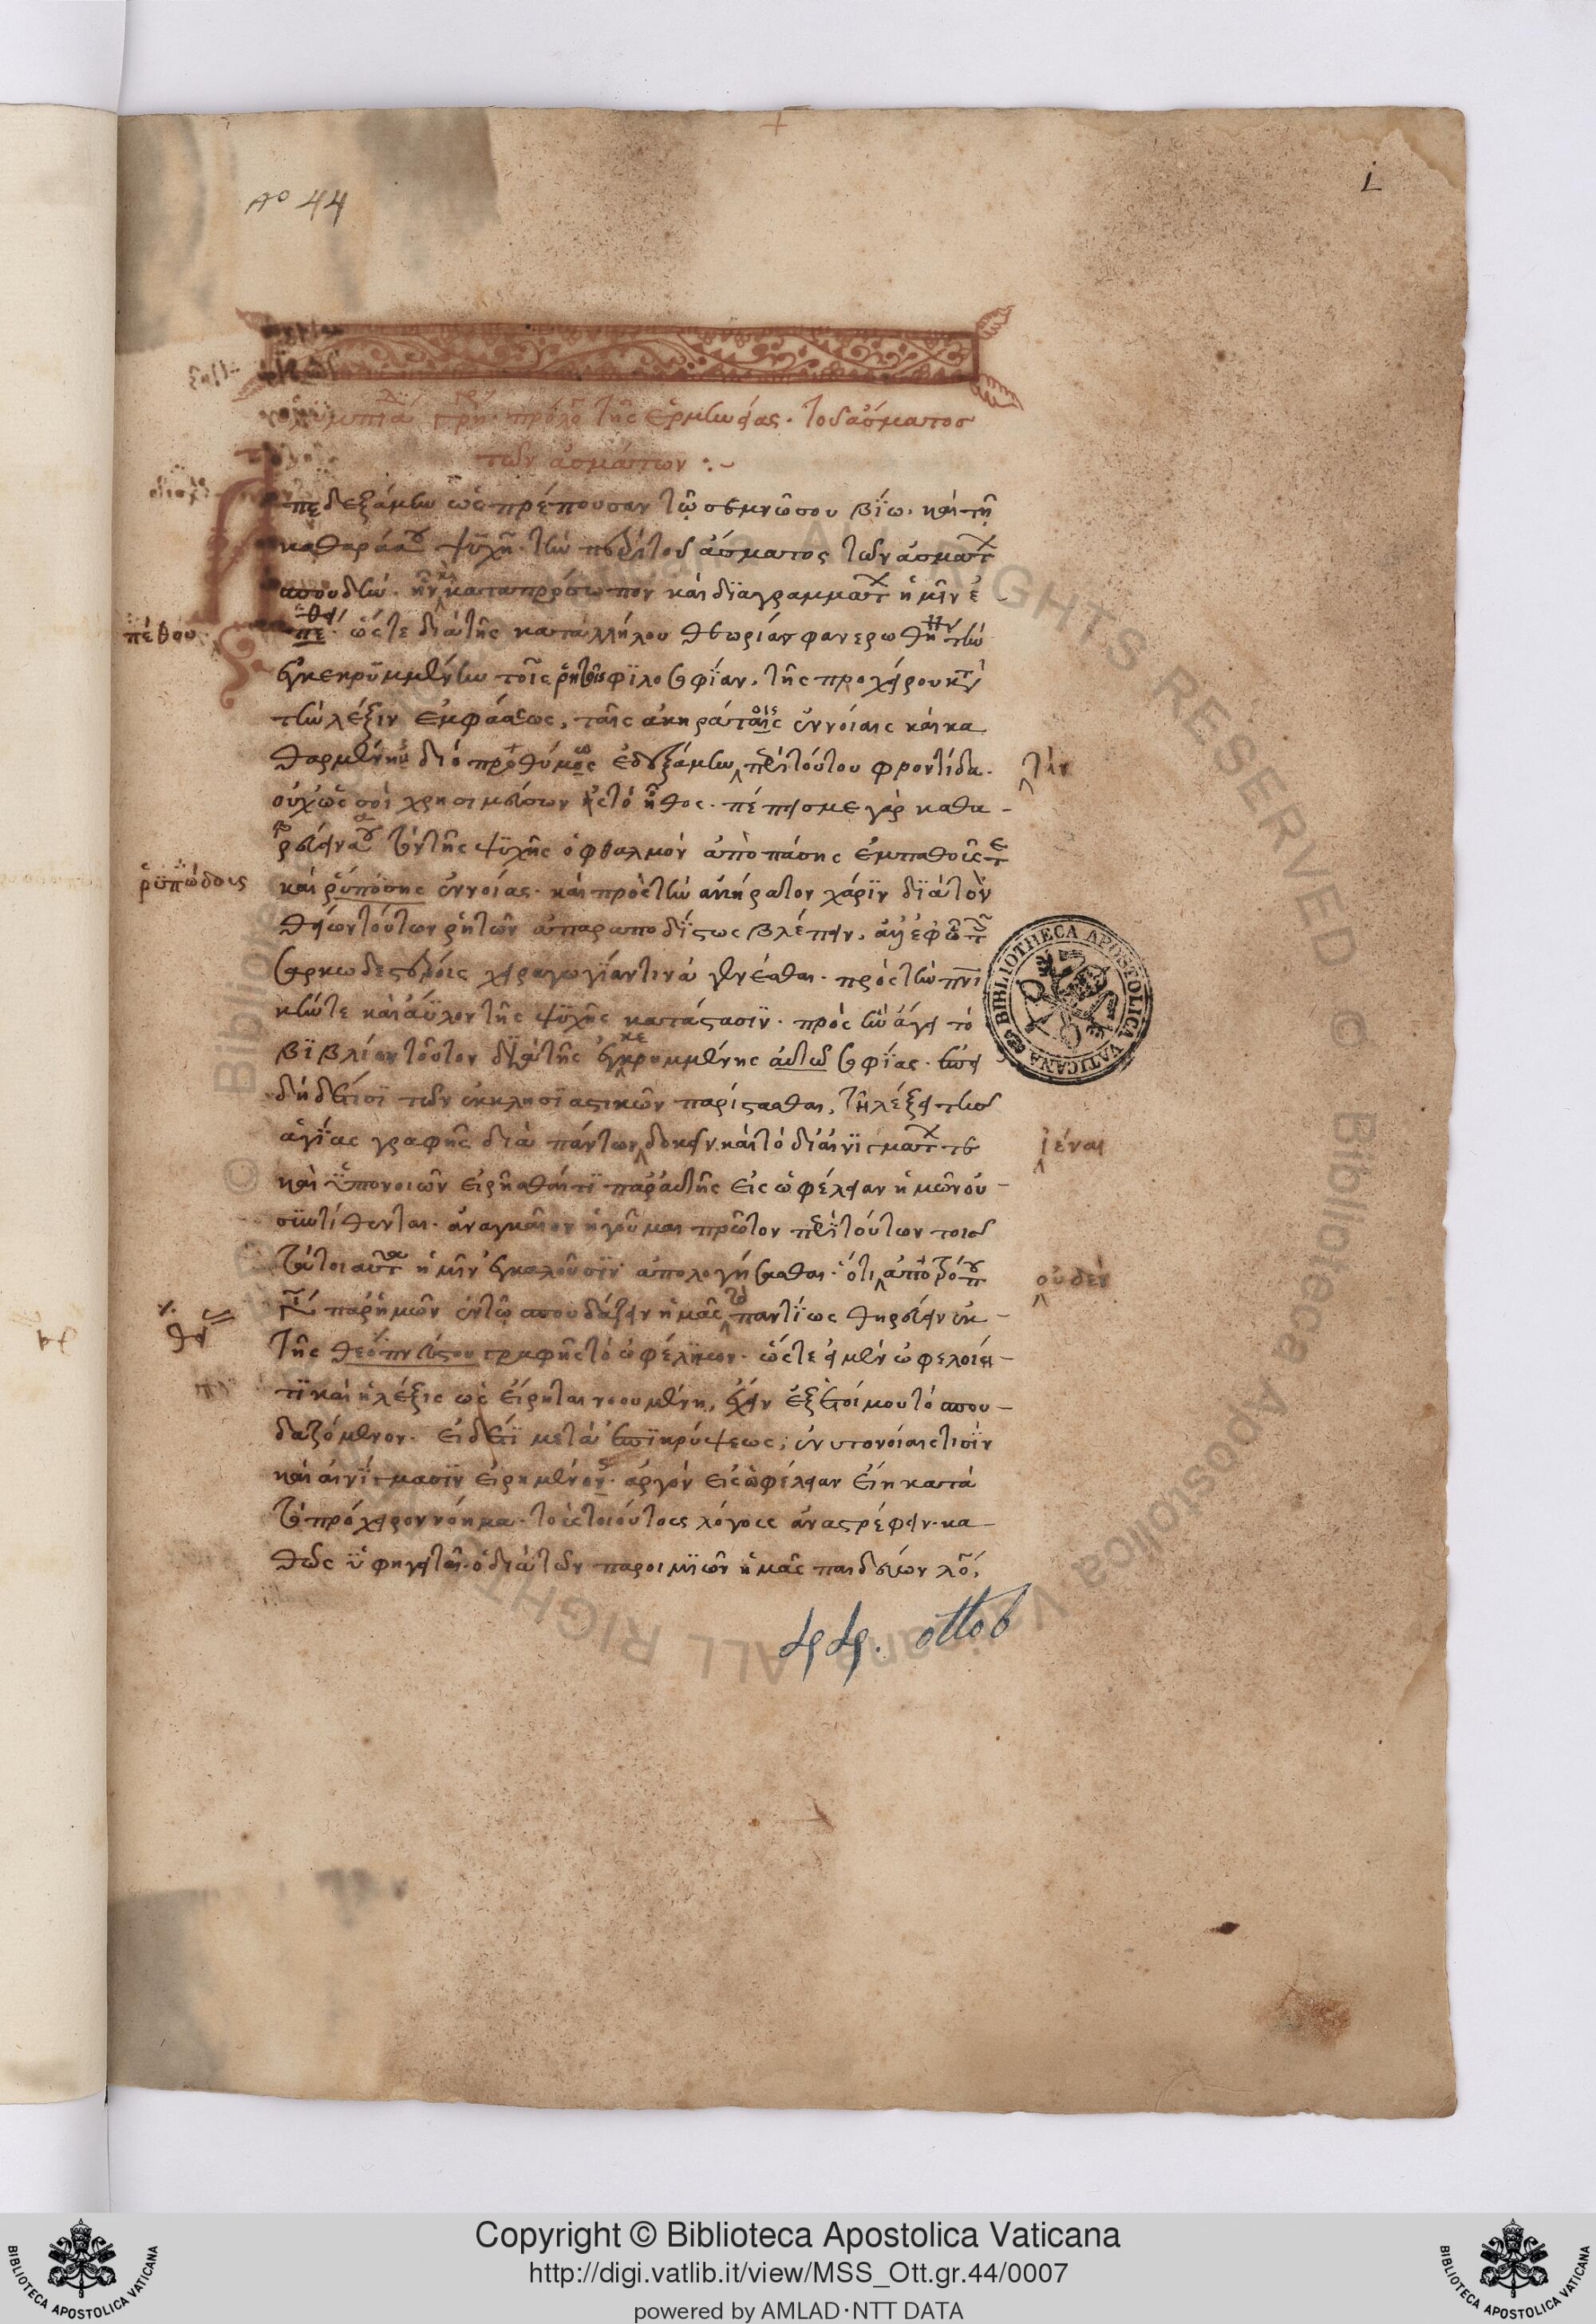 Aº 44
1
ὀλυμπιά γρη πρόλο τῆς ἑρμηνείας τοῦ ἄσματος
τῶν ἀσμάτων :~
πεδεξάμην ὡς πρέπουσαν τῷ σεμνῷ σου βίῳ. καὶ τῇ
καθαρᾷ σου ψυχῇ. τὴν περὶ τοῦ ἄσματος τῶν ἀσμάτ
σπουδὴν. ἣν καταπρόσωπον καὶ διαγραμμάτ ἡμῖν ἐ
πέθου
πε. ὥστε διὰ τῆς καταλλήλου θεωρίαν φανερωθῆ τὴν
ἐγκεκρυμμένην τοῖς ῥητοῖς φιλοσοφίαν. τῆς προχείρου κτ
τὴν λέξιν ἐμφάσεως, ταῖς ἀκηράτοις ἐννοίαις κακα
θαρμένην διὸ προθύμως ἐδεξάμην περὶ τούτου φροντίδα.
τὴν
οὐχ ὡς σοὶ χρησιμεύσων εἰς τὸ ἦθος. πέπεισμε γὰρ καθα-
ρεύειν σου τὸν τῆς ψυχῆς ὀφθαλμὸν ἀπὸ πάσης ἐμπαθοῦς τε
ῥυπώδους
καὶ ῥυπόσης ἐννοίας. καὶ πρὸς τὴν ἀκήρατον χάριν διὰ τὸν
θείων τούτων ῥητῶν ἀπαραποδίστως βλέπειν. ἀλλ' ἐφ' ὧτ
σαρκωδεστέροις χειραγωγίαν τινὰ γενέσθαι. πρὸς τὴν πνι
κήν τε καὶ ἄϋλον τῆς ψυχῆς κατάστασιν. πρὸς ἣν ἄγει τὸ
βιβλίον τοῦτον διὰ τῆς ἐγκρυμμένης αὐτῶ σοφίας. ἐπεὶ
δὴ δέ τισι τῶν ἐκκλησιαστικῶν παρίστασθαι, τῇ λέξει τῆς
ἁγίας γραφῆς διὰ πάντων δοκεῖν καὶ τὸ δι' αἰνιγμάτ τε
ἰέναι
καὶ ὑπονοιῶν εἰρῆσθαί τι παρ' αὐτῆς εἰς ὠφέλειαν ἡμῶν οὐ-
συντίθενται. ἀναγκαῖον ἡγοῦμαι πρῶτον περὶ τούτων τοῖς
τὰ τοιαῦτ ἡμῖν ἐγκαλοῦσιν ἀπολογήσασθαι. ὅτι ἀπὸ τρόπ
οὐδὲν
παρ' ἡμῶν ἐν τῷ σπουδάζειν ἡμᾶς παντίως θηρεύειν ἐκ-
τῆς θεοπνεύστου γραφῆς τὸ ὠφέλημον. ὥστε εἰ μὲν ὠφελοίη-
τι καὶ ἡ λέξις ὡς εἴρηται νοουμένη, ἔχειν ἐξ ἑτοίμου τὸ σπου-
δαζόμενον. εἰ δέ τι μετὰ ἐπικρύψεως, ἐν ὑπονοίαις τισὶν
καὶ αἰνίγμασιν εἰρημένον. ἀργὸν εἰς ὠφέλειαν εἴη κατὰ
τὸ πρόχειρον νόημα. τοὺς τοιούτους λόγους ἀναστρέφειν. κα-
θὼς ὑφηγεῖται. ὁ διὰ τῶν παροιμιῶν ἡμᾶς παιδεύων λό,
44. ottob
BIBLIOTHECA APOSTOLICA VATICANA
Copyright © Biblioteca Apostolica Vaticana
http://digi.vatlib.it/view/MSS_Ott.gr.44/0007
powered by AMLAD·NTT DATA
BIBLIOTECA APOSTOLICA VATICANA
BIBLIOTECA APOSTOLICA VATICANA